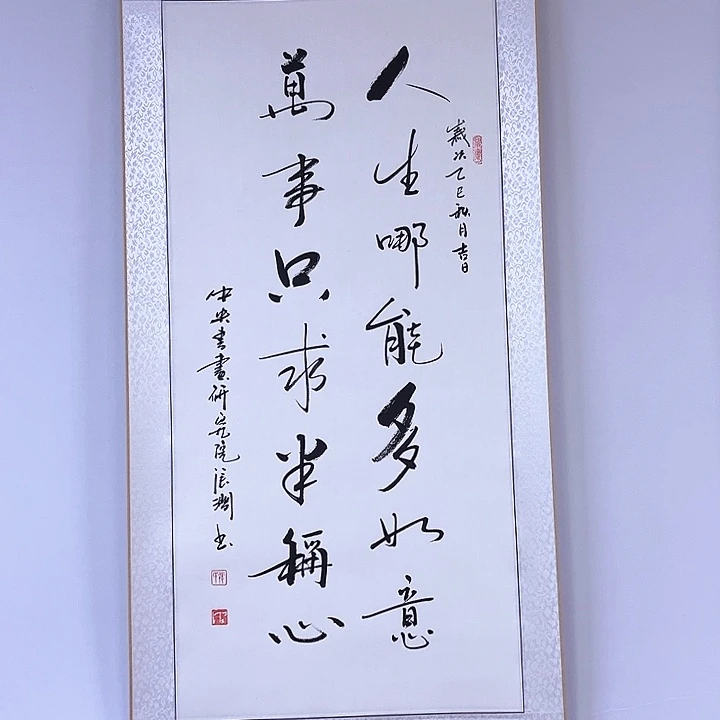 歲次乙巳秋月吉日
人生哪能多如意
萬事只求半稱心
中央書畫研究院 书